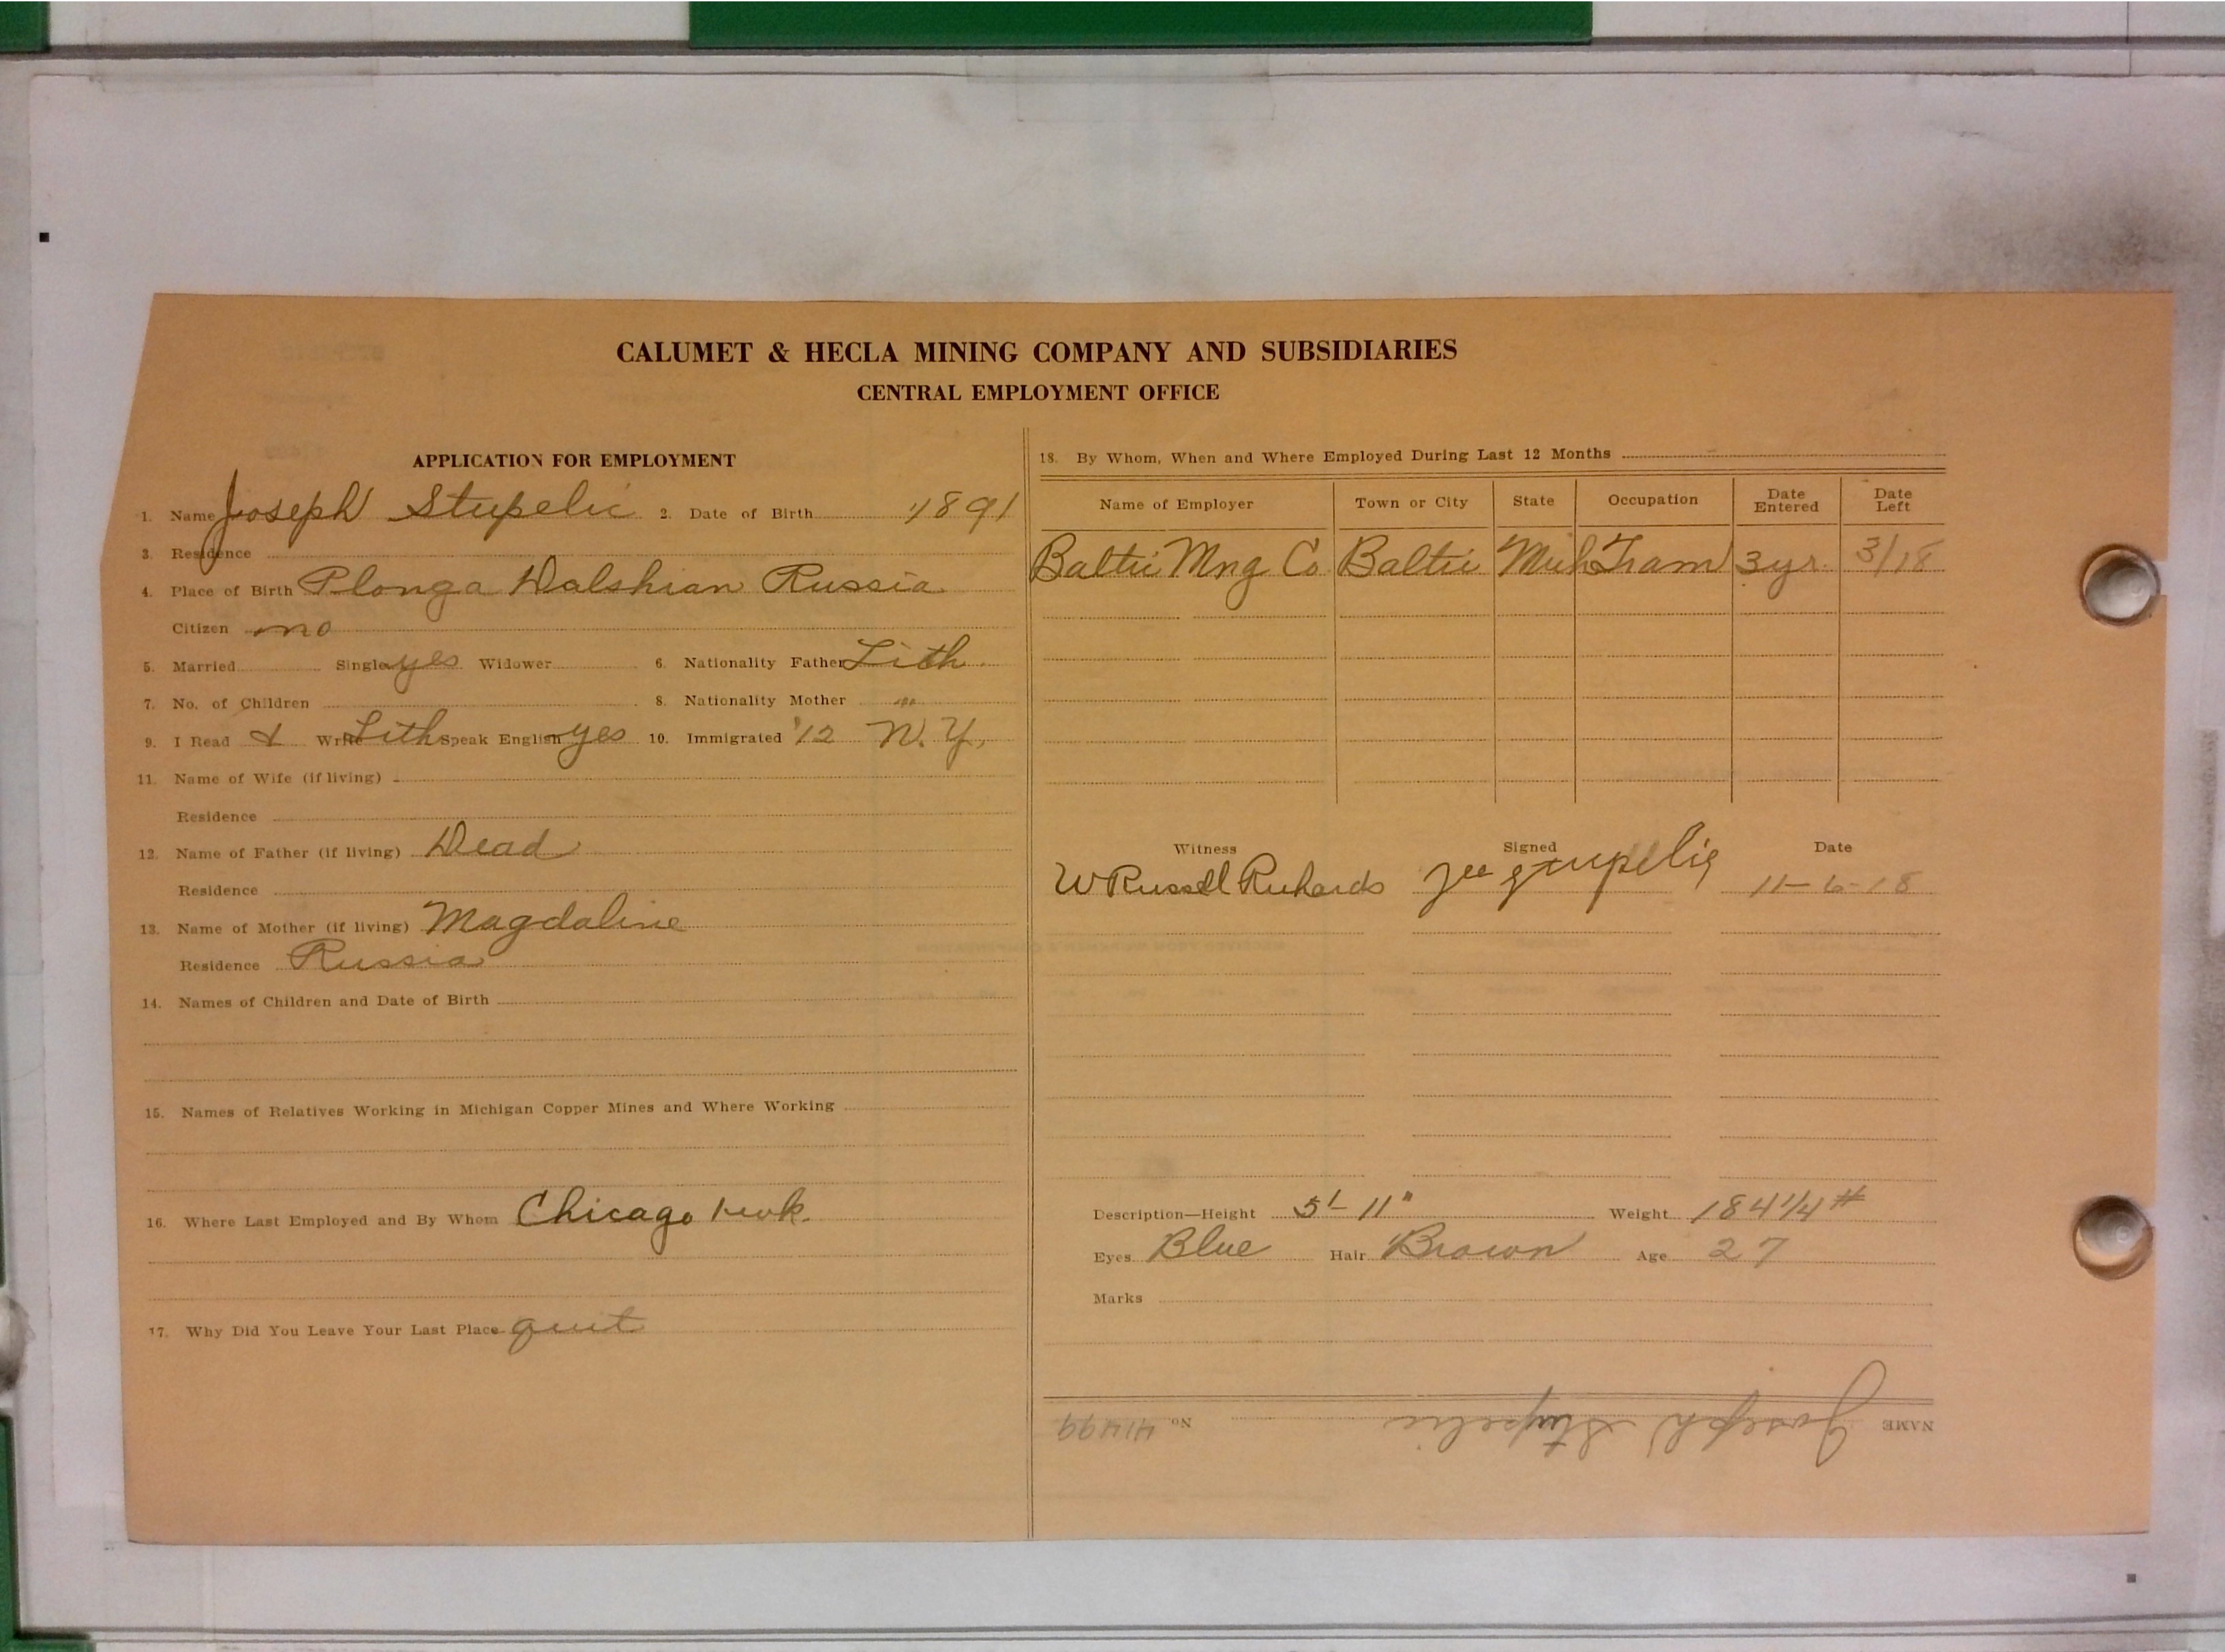 CALUMET & HECLA MINING COMPANY AND SUBSIDIARIES
CENTRAL EMPLOYMENT OFFICE
APPLICATION FOR EMPLOYMENT
1. Name Joseph Stupelic 2. Date of Birth 1891
3. Residence
4. Place of Birth Plonga Walshian Russia
Citizen no
5. Married Single yes Widower 6. Nationality Father Lith
7. No. of Children 8. Nationality Mother "
9. I Read & Write Lith Speak English yes 10. Immigrated '12 N.Y.
11. Name of Wife (if living)
Residence
12. Name of Father (if living) Dead
Residence
13. Name of Mother (if living) Magdaline
Residence Russia
14. Names of Children and Date of Birth
15. Names of Relatives Working in Michigan Copper Mines and Where Working
16. Where Last Employed and By Whom Chicago 1 wk.
17. Why Did You Leave Your Last Place quit
18. By Whom, When and Where Employed During Last 12 Months
Name of Employer Town or City State Occupation Date Entered Date Left
Baltic Mng Co Baltic Mich Tram 3 yr. 3/18
Witness Signed Date
W Russell Richards 11-6-18
Description—Height 5'-11" Weight 184 1/4 #
Eyes Blue Hair Brown Age 27
Marks
NAME Joseph Stupelic No 41499